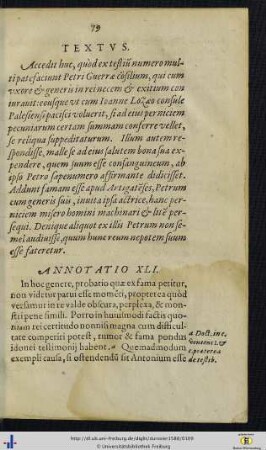 79
TEXTVS.
Accedit huc, quòd ex testiũ numero mul-
ti patefaciunt Petri Guerræ cõsilium, qui cum
vxore & generis in rei necem & exitium con
iurauit: eousque vt cum Ioanne Lozæo consule
Palesiensi pacisci voluerit, si ad eius perniciem
pecuniarum certam summam conferre vellet,
se reliqua suppeditaturum. Illum autem re-
spondisse, malle se ad eius salutem bona sua ex-
pendere, quem suum esse consanguineum, ab
ipso Petro sæpenumero affirmante didicisset.
Addunt famam esse apud Artigatẽses, Petrum
cum generis suis, inuita ipsa actrice, hanc per-
niciem misero homini machinari & litẽ perse-
qui. Denique aliquot ex illis Petrum non se-
mel audiuisse, quum hunc reum nepotem suum
esse fateretur.
ANNOTATIO XLI.
In hoc genere, probatio quæ ex fama petitur,
non videtur parui esse momẽti, propterea quòd
versamur in re valde obscura, perplexa, & mon-
stri penè simili. Porro in huiusmodi factis quo-
niam rei certitudo non nisi magna cum difficul-
tate comperiri potest, rumor & fama pondus
idonei testimonij habent. a Quemadmodum
exempli causa, si ostendendũ sit Antonium esse
a Doct. in c.
veniens. &
c. præterea
de testib.
http://dl.ub.uni-freiburg.de/diglit/
© Universitätsbibliothek Freiburg